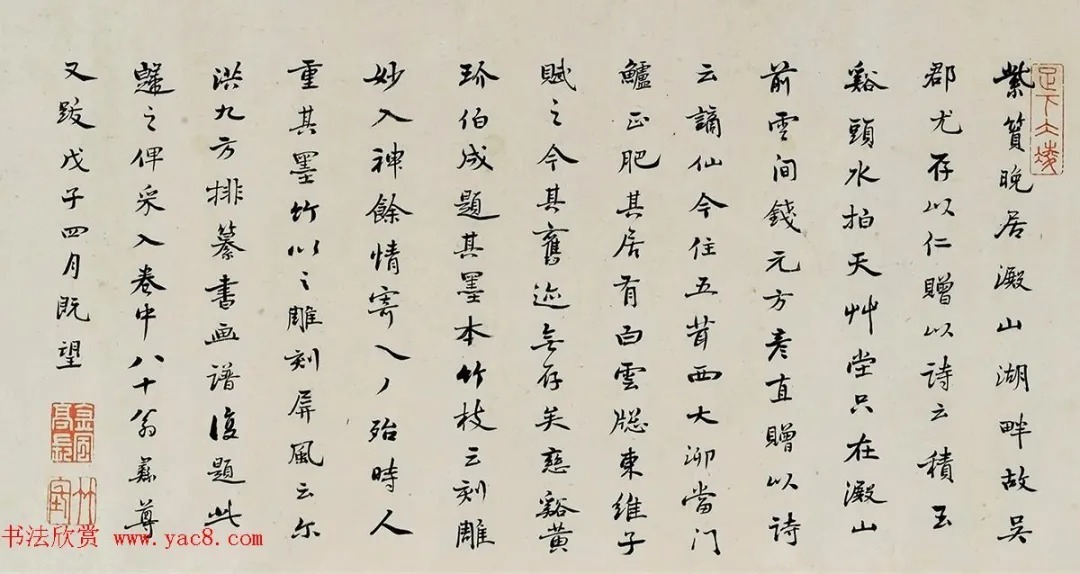 紫篔晚居澱山湖畔故吴
郡尤存以仁贈以詩云積玉
谿頭水拍天艸堂只在澱山
前雲間錢元方彥直贈以詩
云謫仙今住五茸西大泖當門
鱸正肥其居有白雲牕東維子
賦之今其舊迹無存矣慈谿黄
玠伯成題其墨本竹枝云刻雕
妙入神餘情寄殆時人
重其墨竹以之雕刻屏風云尔
洪九方排纂書画譜復題此
歸之俾采入卷中八十翁彝尊
又跋戊子四月既望
书法欣赏 www.yac8.com